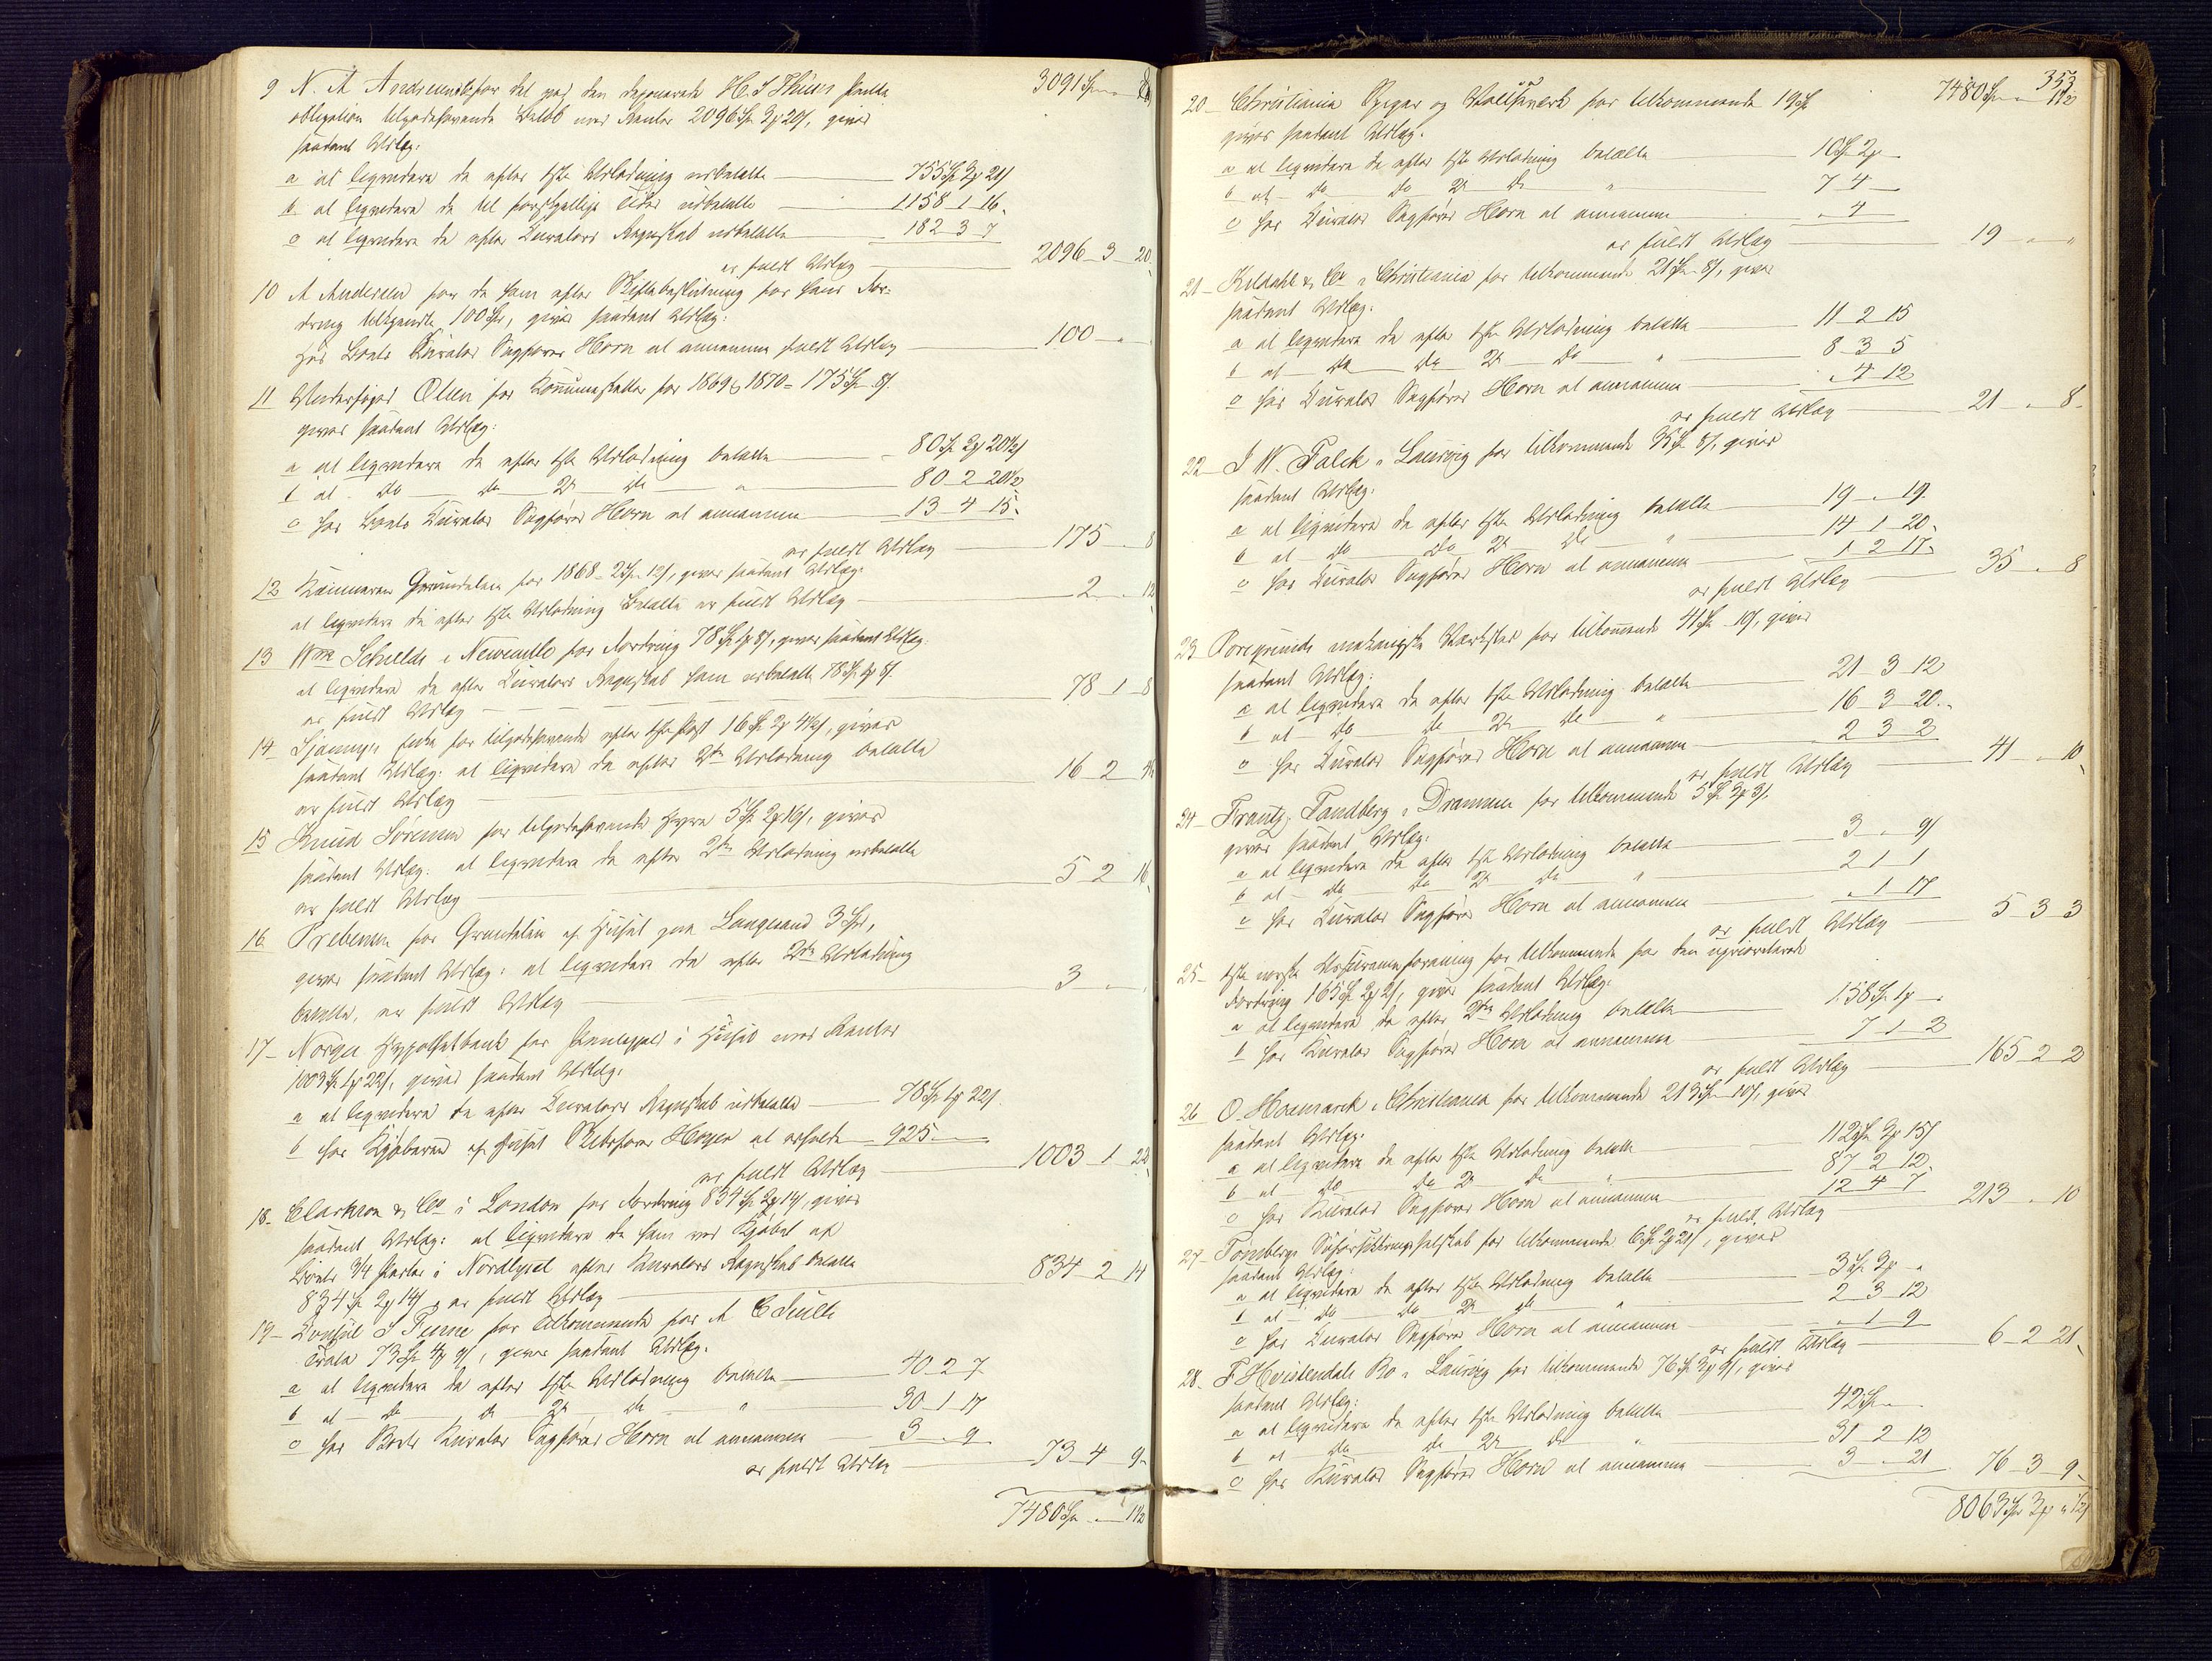 3091 Sp
9 N. A. Andresen for det paa den deponerede H. S. Thiis Pante
obligation tilgodehavende Beløb med Renter 2096 Sp 3 ƥ 20 ß, gives
saadant Udlæg:
a at liqvidere de efter 1ste Udlodning udbetalte 755 Sp 3 ƥ 21 ß
b at liqvidere de til forskjellige Tider udbetalte 1158 1 16
c at liqvidere de efter Curators Regnskab udbetalte 182 3 7
er fuldt Udlæg 2096 3 20
10 A Andersen for de ham efter Skiftebeslutning for hans For-
dring tilkjendte 100 Spd, gives saadant Udlæg:
Hos Boets Curator Sagfører Horn at annamme fuldt Udlæg 100 "
11 Underfoged Olsen for Kommuneskatter for 1869 & 1870 = 175 Sp 8 ß
gives saadant Udlæg:
a at liqvidere de efter 1ste Udlodning betalte 80 Sp 2 ƥ 20½ ß
b at do do 2den do " 80 2 20½
c hos Boets Curator Sagfører Horn at annamme 13 4 15
er fuldt Udlæg 175 " 8
12 Kæmneren Grundeleie for 1868 = 2 Sp 12 ß, gives saadant Udlæg:
at liqvidere de efter 1ste Udlodning betalte er fuldt Udlæg 2 " 12
13 Wm Schields i Newcastle for Fordring 78 Sp 1 ƥ 8 ß, gives saadant Udlæg:
at liqvidere de efter Curators Regnskab ham udbetalte 78 Sp 1 ƥ 8 ß
er fuldt Udlæg 78 1 8
14 for tilgodehavende efter 1ste Post 16 Sp 2 ƥ 4½ ß, gives
saadant Udlæg: at liqvidere de efter 2den Udlodning betalte
er fuldt Udlæg 16 2 4½
15 Knud Sørensen for tilgodehavende Hyre 5 Sp 2 ƥ 16 ß, gives
saadant Udlæg: at liqvidere de efter 2den Udlodning udbetalte
er fuldt Udlæg 5 2 16
16 Prebensen for Grundeleie af Huset paa Langesand 3 Spd,
gives saadant Udlæg: at liqvidere de efter 2den Udlodning
betalte, er fuldt Udlæg 3 "
17 Norges Hypothekbank for Pantegjæld i Huset med Renter
1003 Sp 1 ƥ 22 ß, gives saadant Udlæg:
a at liqvidere de efter Curators Regnskab udbetalte 78 Sp 1 ƥ 22 ß
b hos Kjøberen af Huset Skibsfører Hoyer at erholde 925
er fuldt Udlæg 1003 1 22
18 Clarkson & Co i London for Fordring 834 Sp 2 ƥ 14 ß, gives
saadant Udlæg: at liqvidere de ham ved Kjøbet af
Boets ¾ Parter i Nordlyset efter Curators Regnskab betalte
834 Sp 2 ƥ 14 ß er fuldt Udlæg 834 2 14
19 Consul S. for tilkommende for A C
Trata 73 Sp 4 ƥ 9 ß, gives saadant Udlæg:
a at liqvidere de efter 1ste Udlodning betalte 40 2 7
b at do do 2den do " 30 1 17
c hos Boets Curator Sagfører Horn at annamme 3 " 9
er fuldt Udlæg 73 4 9
7480 Sp " 11½
353
7480 Sp " 11½
20 Christiania Spiger og Valseværk for tilkommende 19 Sp
gives saadant Udlæg:
a at liqvidere de efter 1ste Udlodning betalte 10 Sp 2 ƥ
b at do do 2den do " 7 4
c hos Curator Sagfører Horn at annamme " 4
er fuldt Udlæg 19 " "
21 Kildahl & Co i Christiania for tilkommende 21 Sp 8 ß, gives
saadant Udlæg:
a at liqvidere de efter 1ste Udlodning betalte 11 2 15
b at do do 2den do " 8 3 5
c hos Curator Sagfører Horn at annamme " 4 12
er fuldt Udlæg 21 " 8
22 J W. Falck i Laurvig for tilkommende 35 Sp 8 ß, gives
saadant Udlæg:
a at liqvidere de efter 1ste Udlodning betalte 19 " 19
b at do do 2den do " 14 1 20
c hos Curator Sagfører Horn at annamme 1 2 17
er fuldt Udlæg 35 " 8
23 Porsgrunds mekaniske Værksted for tilkommende 41 Sp 10 ß, gives
saadant Udlæg:
a at liqvidere de efter 1ste Udlodning betalte 21 3 12
b at do do 2den do " 16 3 20
c hos Curator Sagfører Horn at annamme 2 3 2
er fuldt Udlæg 41 " 10
24 Frantz Tandberg i Drammen for tilkommende 5 Sp 3 ƥ 3 ß,
gives saadant Udlæg:
a at liqvidere de efter 1ste Udlodning betalte 3 " 9 ß
b at do do 2den do " 2 1 1
c hos Curator Sagfører Horn at annamme " 1 17
er fuldt Udlæg 5 3 3
25 1ste norske Assuranceforening for tilkommende for den upriorterede
Fordring 165 Sp 2 ƥ 2 ß, gives saadant Udlæg:
a at liqvidere de efter 2den Udlodning betalte 158 Sp 1 ƥ "
b hos Curator Sagfører Horn at annamme 7 1 2
er fuldt Udlæg 165 2 2
26 O. Hoemarck i Christiania for tilkommende 213 Sp 10 ß, gives
saadant Udlæg:
a at liqvidere de efter 1ste Udlodning betalte 112 Sp 3 ƥ 15 ß
b at do do 2den do " 87 2 12
c hos Curator Sagfører Horn at annamme 12 4 7
er fuldt Udlæg 213 " 10
27 Tønsbergs Søforsikkringsselskab for tilkommende 6 Sp 2 ƥ 21 ß, gives
saadant Udlæg:
a at liqvidere de efter 1ste Udlodning betalte 3 Sp 3 ƥ "
b at do do 2den do " 2 3 12
c hos Curator Sagfører Horn at annamme " 1 9
er fuldt Udlæg 6 2 21
28 F Hvistendals Bo i Laurvig for tilkommende 76 Sp 3 ƥ 9 ß, gives
saadant Udlæg:
a at liqvidere de efter 1ste Udlodning betalte 42 Sp "
b at do do 2den do " 31 2 12
c hos Curator Sagfører Horn at annamme 3 " 21 76 3 9
8063 Sp 3 ƥ " ½ ß